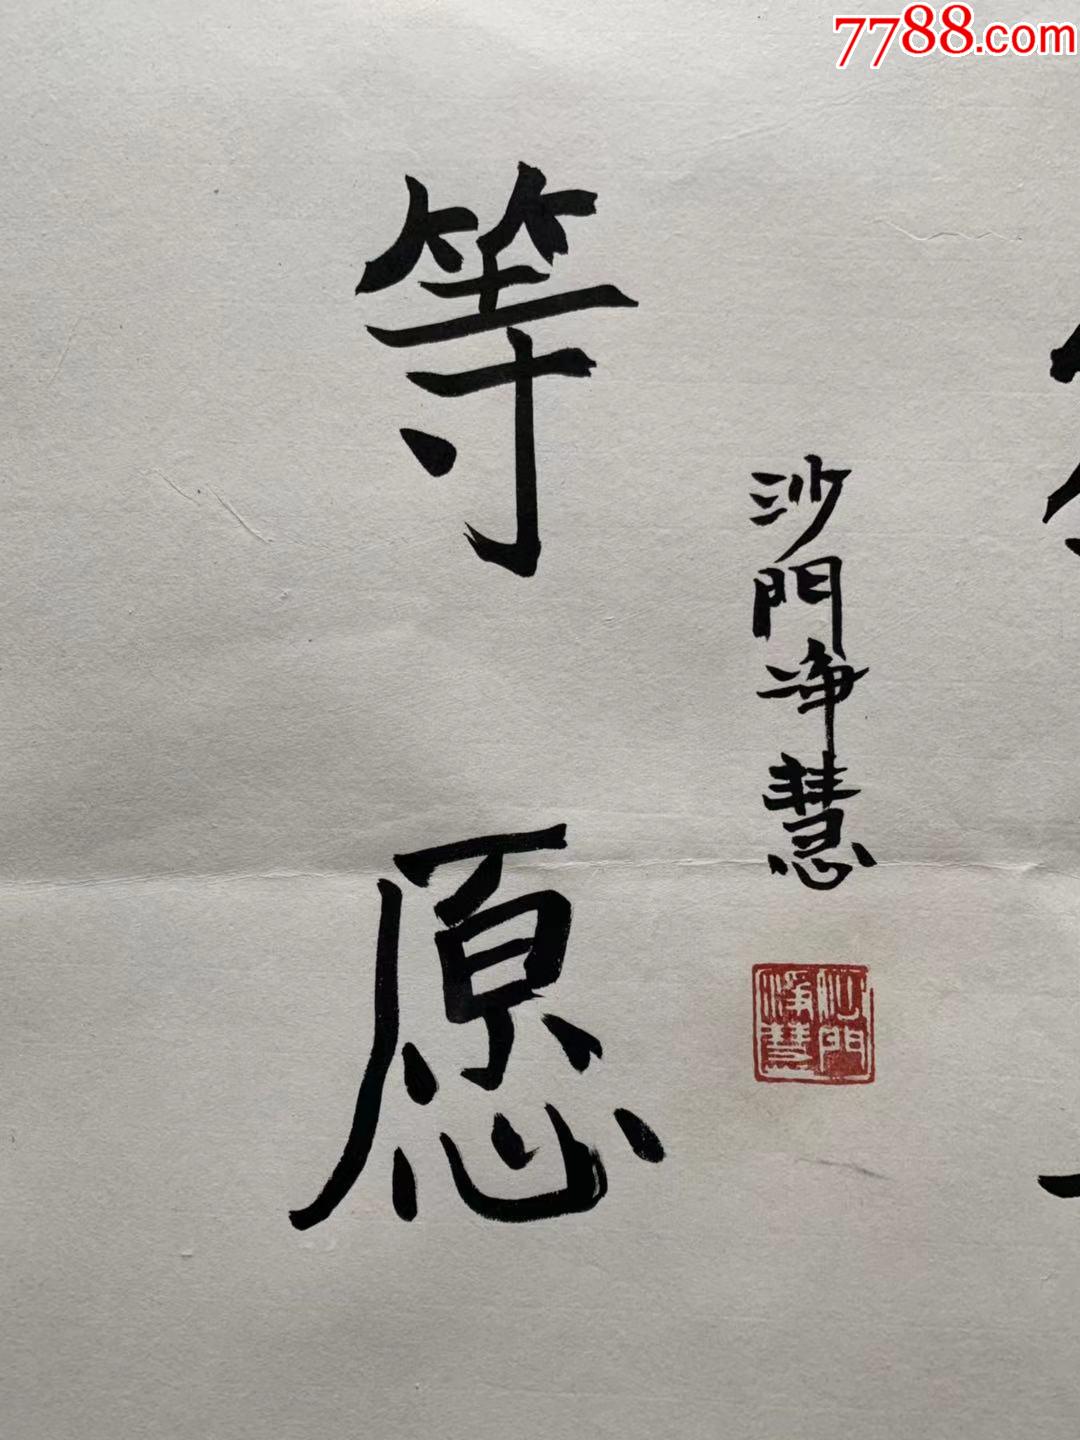 7788.com
沙門净慧
沙門
淨慧
等愿